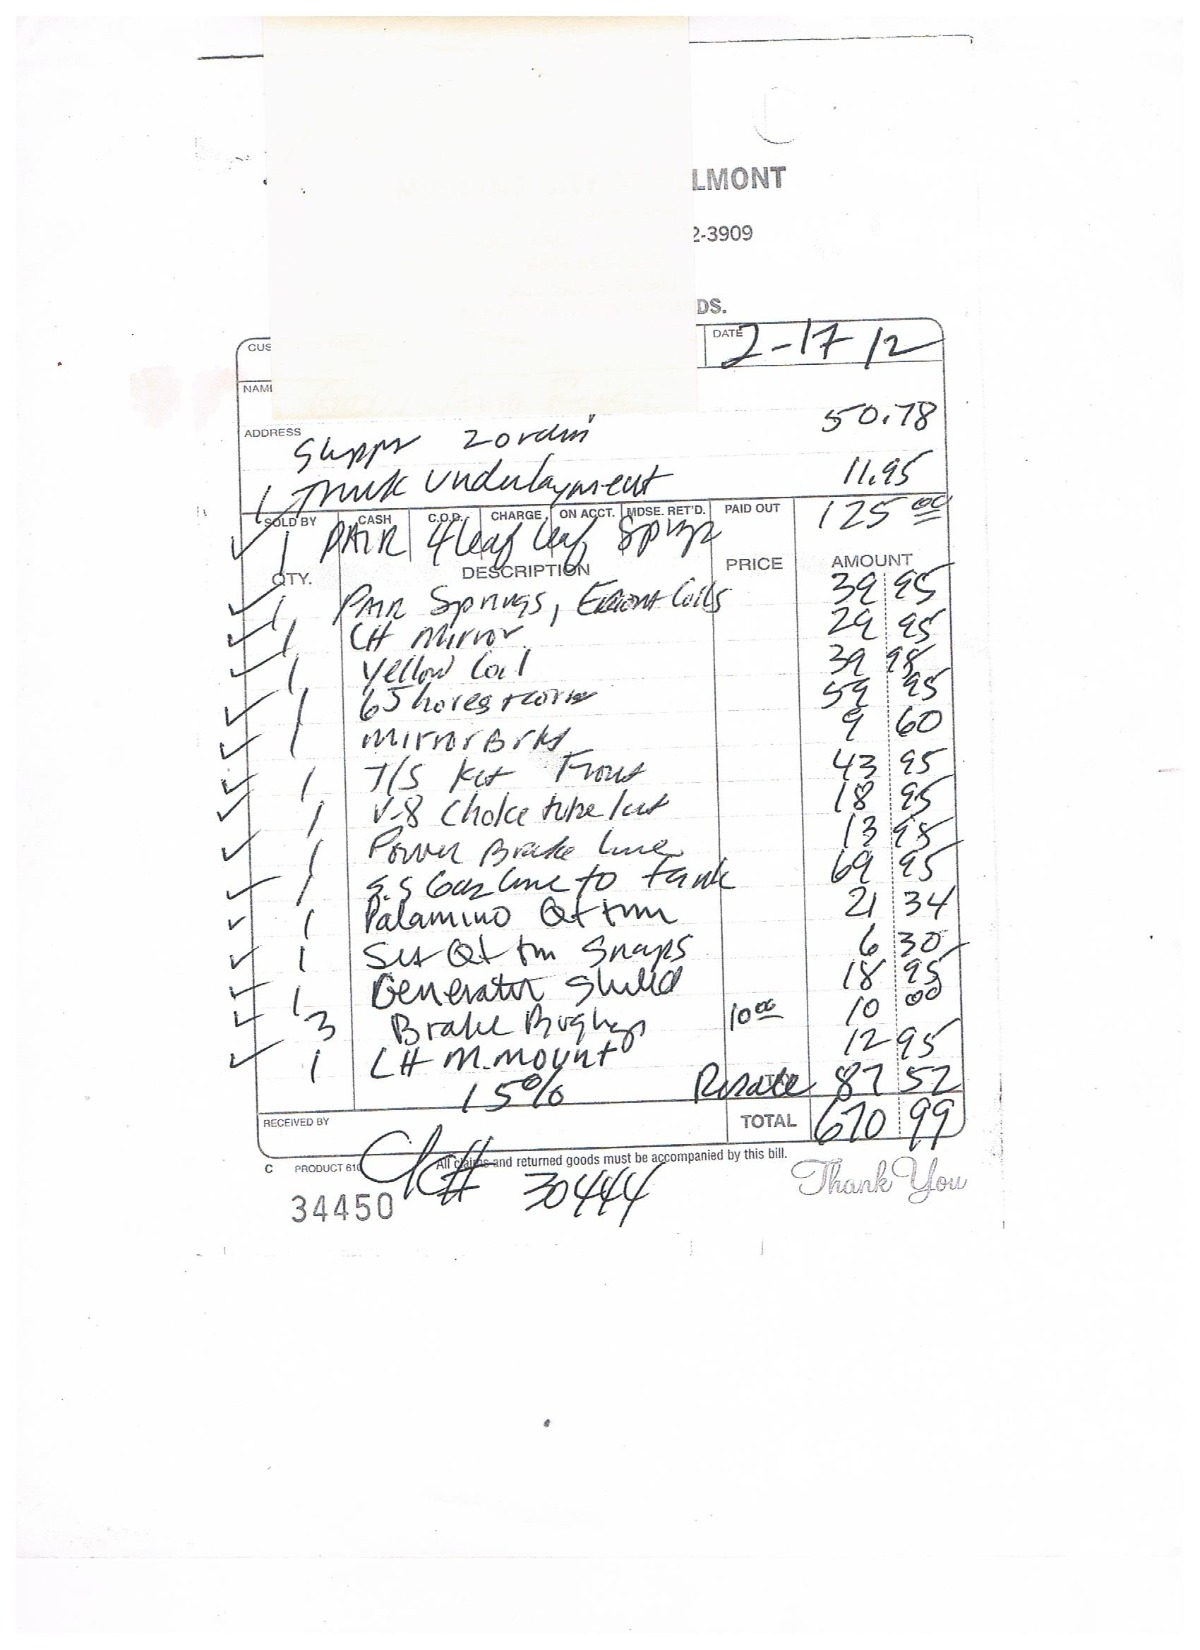 LMONT
2-3909
DS.
CUS
DATE 2-17 12
NAME
ADDRESS
50.78
1 Trunk Underlayment 11.95
SOLD BY CASH C.O.D. CHARGE ON ACCT. MDSE. RET'D. PAID OUT
1 PAIR 4 leaf leaf Springs 125 00
QTY. DESCRIPTION PRICE AMOUNT
1 PAIR Springs, Coils 39 95
1 LH Mirror 29 95
1 Yellow Coil 39 95
1 59 95
1 Mirror Brkt 9 60
1 T/S Kit Front 43 95
1 V-8 Choke tube kit 18 95
1 Power Brake Line 13 95
1 S.S Gas line to tank 69 95
1 Palamino Qt trm 21 34
1 Set Qt trm Snaps 6 30
1 Generator Shield 18 95
3 Brake 10 00 10 00
1 LH M. mount 12 95
15% 87 52
RECEIVED BY TOTAL 670 99
C PRODUCT 610 All claims and returned goods must be accompanied by this bill.
Thank You
34450 CK# 30444